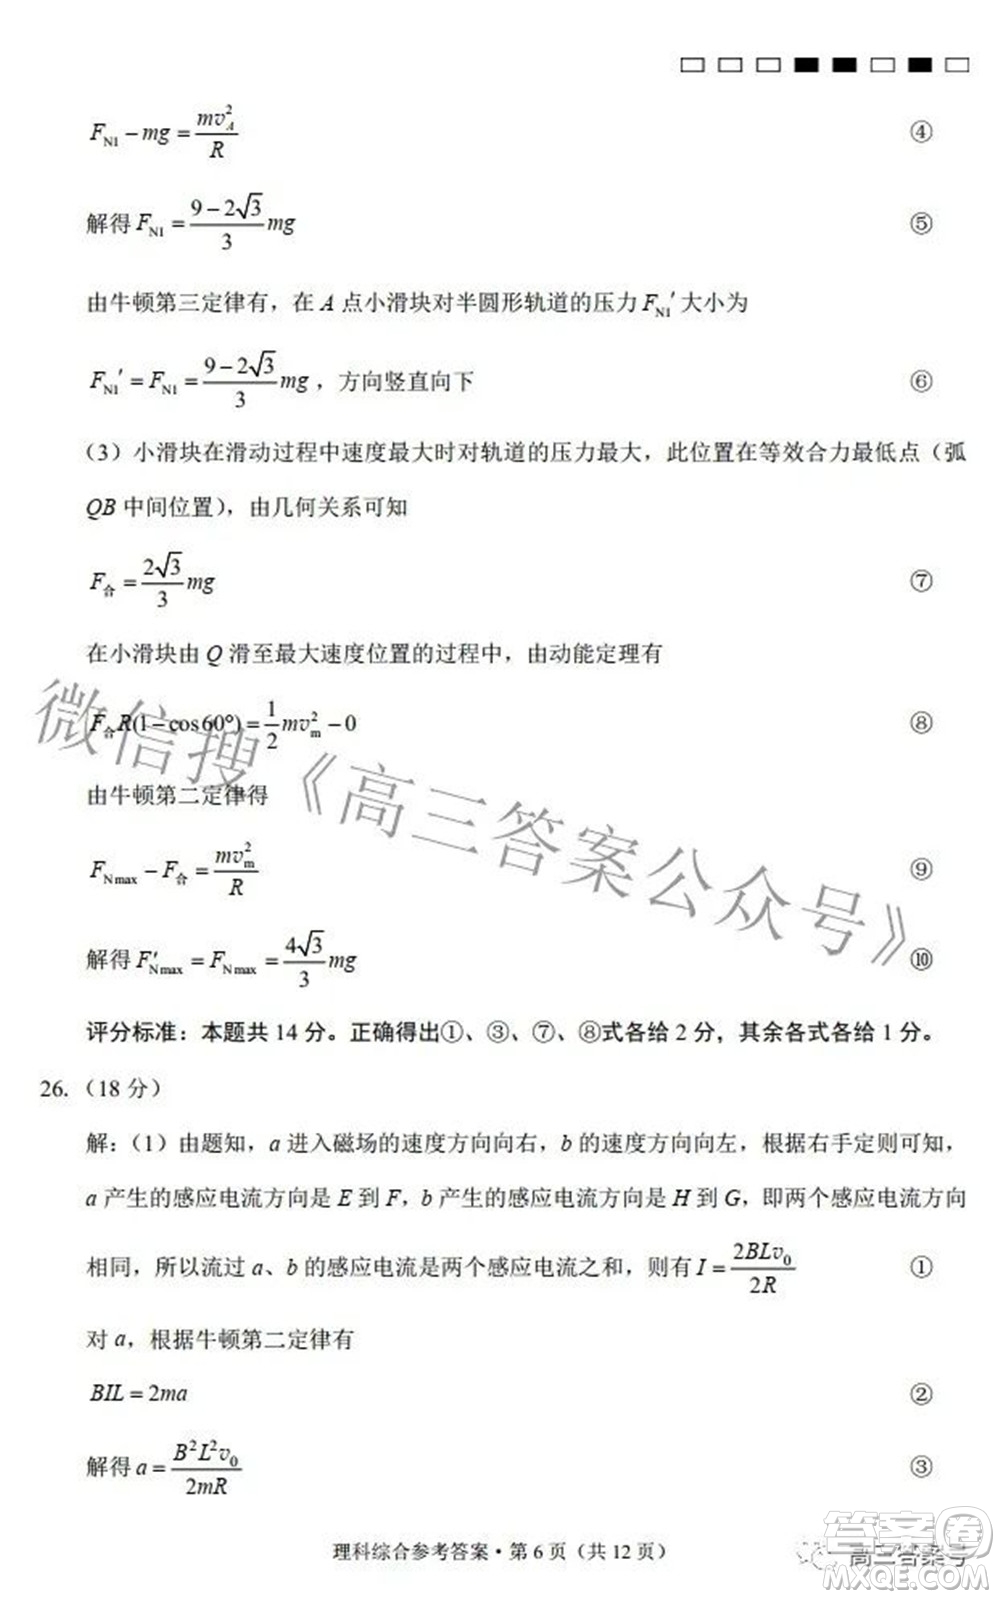 F_N1 − mg = mv_A²/R ④
解得 F_N1 = (9−2√3)/3 mg ⑤
由牛顿第三定律有，在 A 点小滑块对半圆形轨道的压力 F_N1′ 大小为
F_N1′ = F_N1 = (9−2√3)/3 mg，方向竖直向下 ⑥
（3）小滑块在滑动过程中速度最大时对轨道的压力最大，此位置在等效合力最低点（弧
QB 中间位置），由几何关系可知
F_合 = 2√3/3 mg ⑦
在小滑块由 Q 滑至最大速度位置的过程中，由动能定理有
F_合 R(1−cos60°) = 1/2 mv_m² − 0 ⑧
由牛顿第二定律得
F_Nmax − F_合 = mv_m²/R ⑨
解得 F′_Nmax = F_Nmax = 4√3/3 mg ⑩
评分标准：本题共 14 分。正确得出①、③、⑦、⑧式各给 2 分，其余各式各给 1 分。
26.（18 分）
解：（1）由题知，a 进入磁场的速度方向向右，b 的速度方向向左，根据右手定则可知，
a 产生的感应电流方向是 E 到 F，b 产生的感应电流方向是 H 到 G，即两个感应电流方向
相同，所以流过 a、b 的感应电流是两个感应电流之和，则有 I = 2BLv₀/2R ①
对 a，根据牛顿第二定律有
BIL = 2ma ②
解得 a = B²L²v₀/2mR ③
理科综合参考答案·第 6 页（共 12 页）
微信搜《高三答案公众号》
高三答案号
答案卷
MXQE.COM